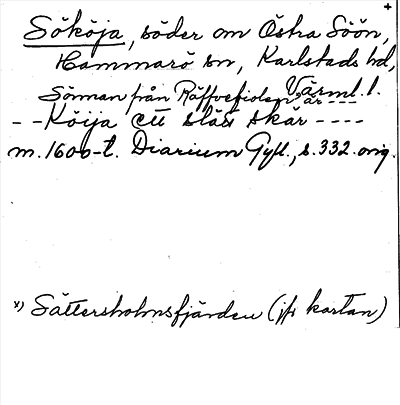 +
Sököja, söder om Östra Söön,
Hammarö sn, Karlstads hd,
Värml. l.
Sönnan från Räffvefiolen x) är ---
-- Köija ett slätt skär ----
m. 1600-t. Diarium Gyll., s. 332. orig.
x) Sättersholmsfjärden (jfr kartan)